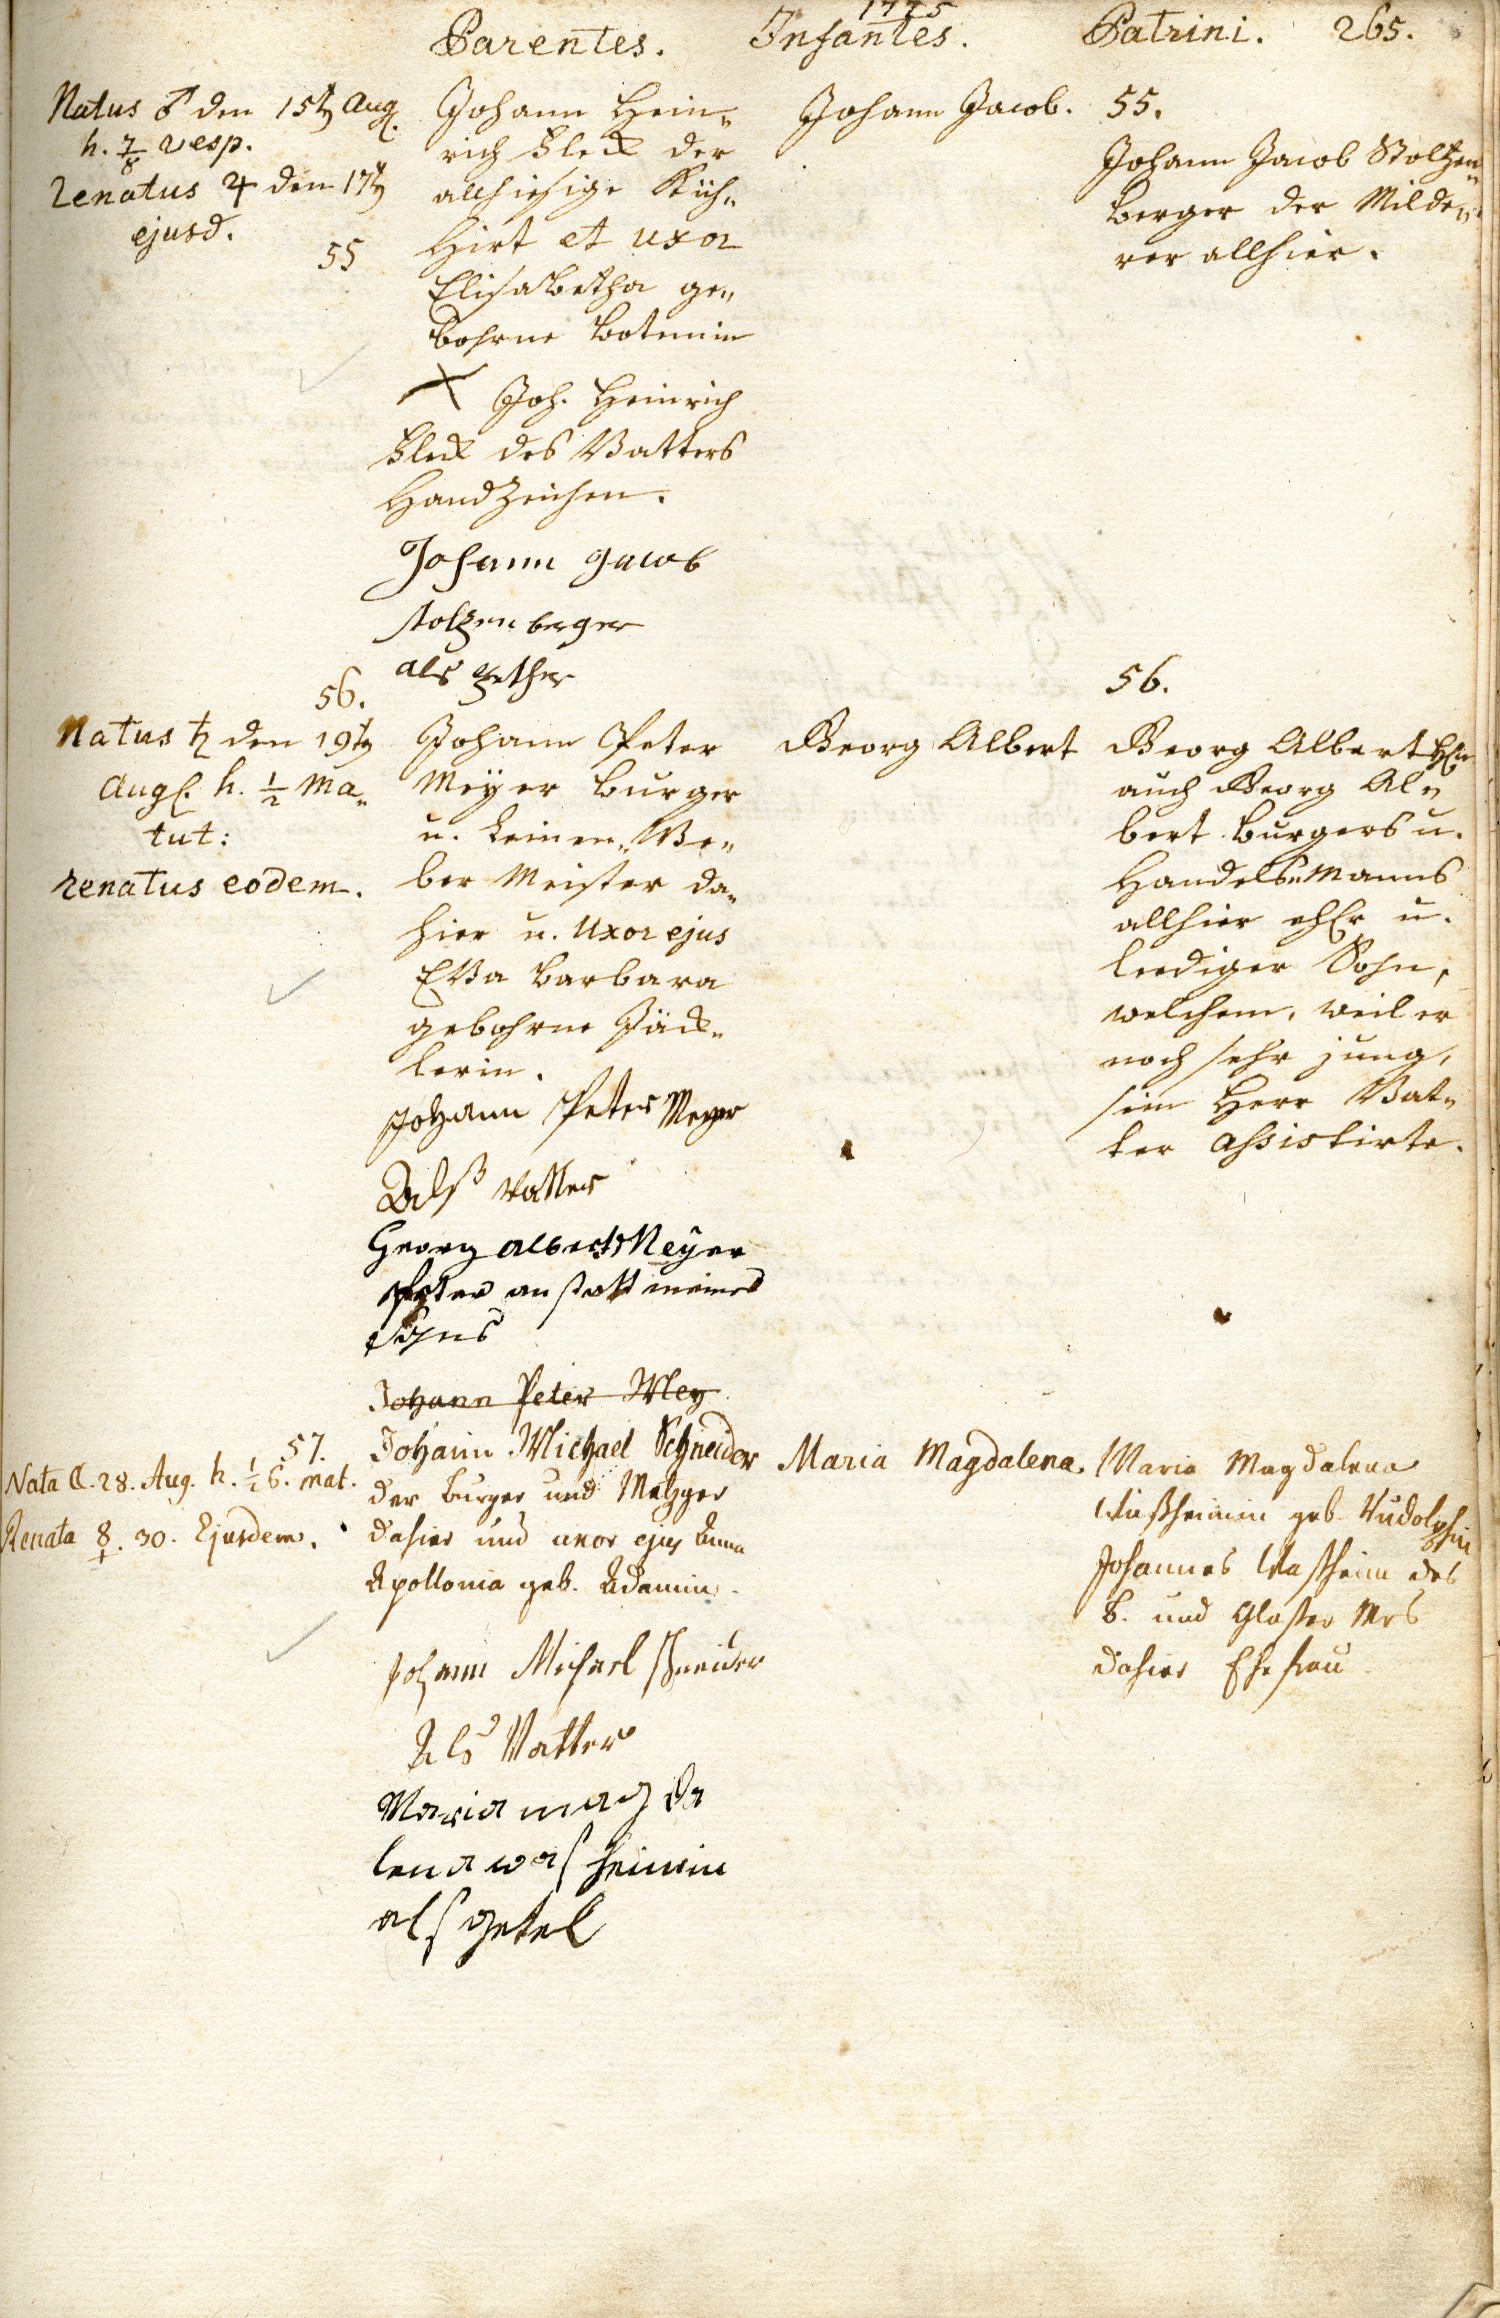 1775
Parentes. Infantes. Patrini. 265.
Natus ♂ den 15t Aug.
h. 7/8 vesp.
renatus ♃ den 17t
ejusd.
55
Johann Hein„
rich Bleck der
allhiesige Küh„
Hirt et uxor
Elisabetha ge„
bohrne
X Joh. Heinrich
Bleck des Vatters
Handzeichen.
Johann Jacob
stolzenberger
als
Johann Jacob.
55.
Johann Jacob Stoltzen„
berger der
rer allhier.
56.
Natus ♄ den 19t
Aug. h. 1/2 ma„
tut:
renatus eodem.
Johann Peter
Meÿer Burger
u. Leinen„We„
ber Meister da„
hier u. Uxor ejus
Eva Barbara
gebohrne Jäck„
lerin.
Johann Peter Meyer
Alß vatter
Georg albert Meÿer
Peter anstatt meines
sohns
Johann Peter Mey
Georg Albert
56.
Georg Albert
auch Georg Al„
bert Burgers u.
Handels„Manns
allhier u.
lediger Sohn,
welchem, weil er
noch sehr jung,
sein Herr Vat„
ter assistirte.
57.
Nata ☾. 28. Aug. h. 1/2 6. mat.
Renata ☿. 30. Ejusdem.
Johann Michael Schneider
der burger und Metzger
dahier und uxor ejus Anna
Apollonia geb. Adamin.
Johann Michael schneider
Als Vatter
Maria mag da
lena washeimin
als getel
Maria Magdalena.
Maria Magdalena
Waßheimin geb. Rudolphin
Johannes Washeim des
B. und Glaßer Mrs
dahier Ehefrau